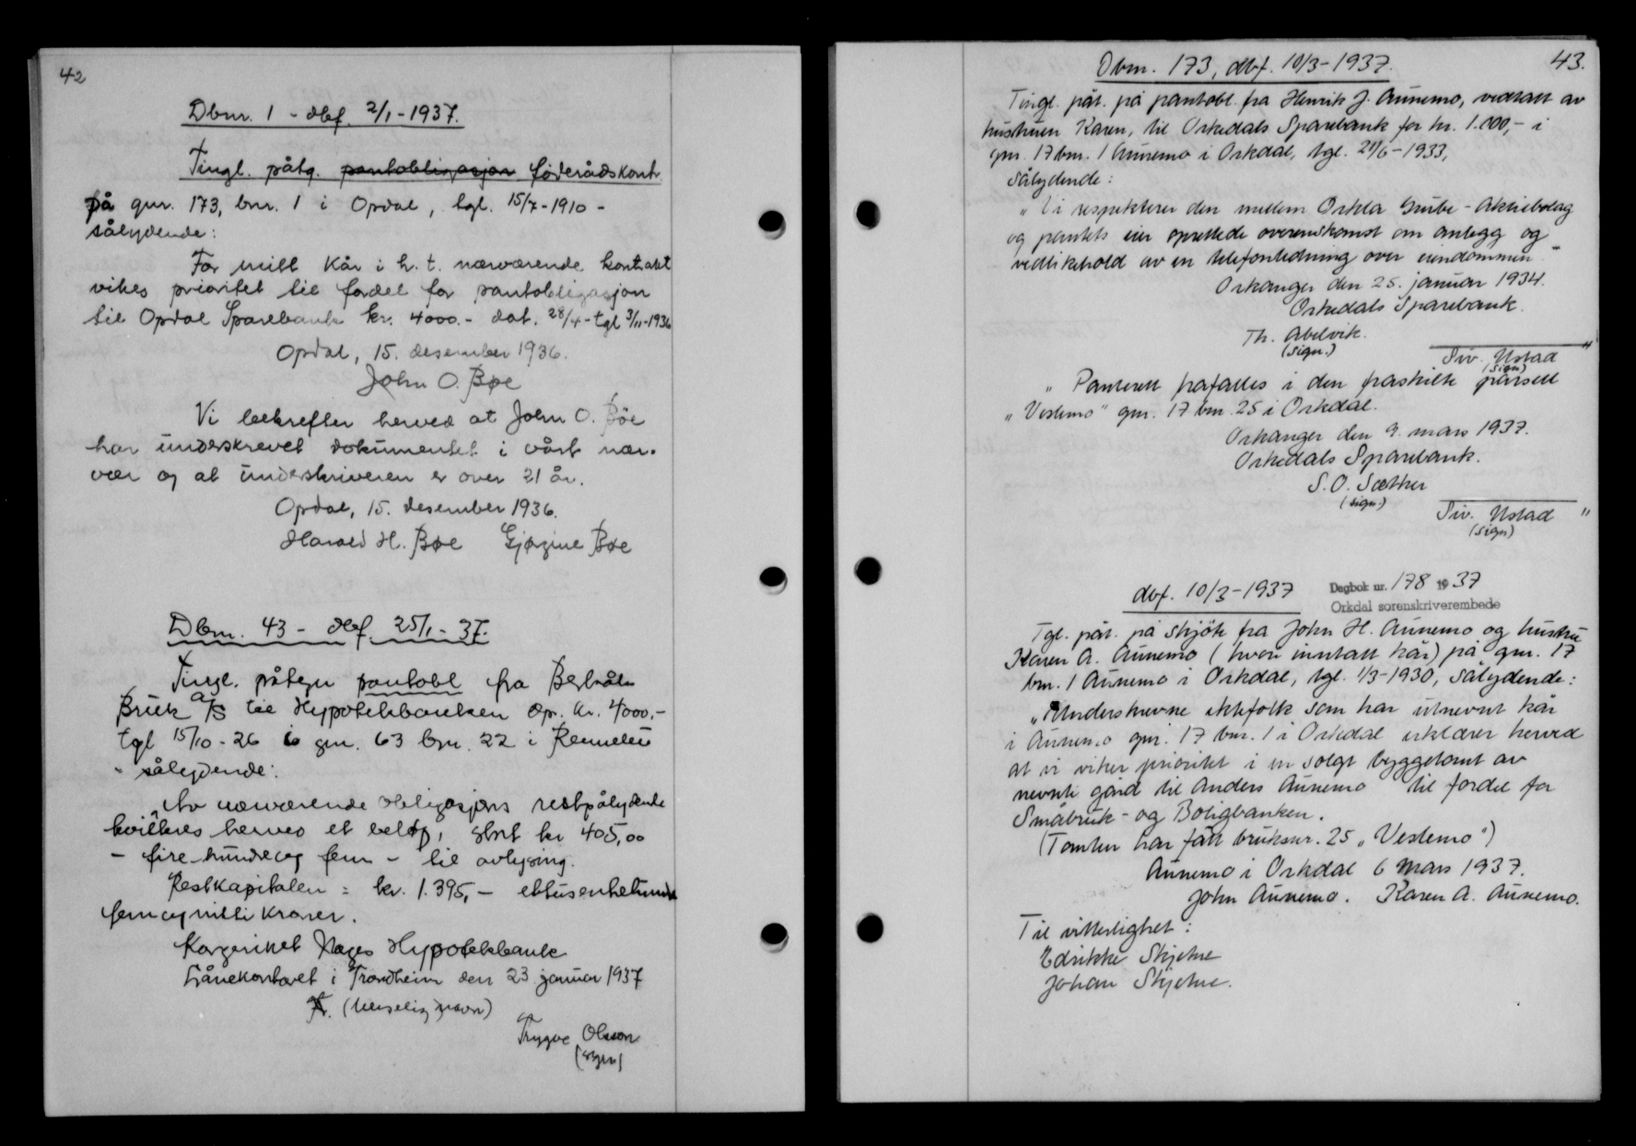 42
Dbnr. 1 - dbf. 2/1-1937.
Tingl. påtg. pantobligasjon føderådskontr.
på gnr. 173, bnr. 1 i Opdal, tgl. 15/7-1910 -
sålydende:
For mitt kår i h. t. nærværende kontrakt
vikes prioritet til fordel for pantobligasjon
til Opdal Sparebank kr. 4000.- dat. 28/4 - tgl 3/11-1936
Opdal, 15. desember 1936.
John O. Bøe
Vi bekrefter herved at John O. Bøe
har underskrevet dokumentet i vårt nær-
vær og at underskriveren er over 21 år.
Opdal, 15. desember 1936.
Harald H. Bøe Gjørine Bøe
Dbnr. 43 - dbf. 25/1 - 37.
Tingl. påtegn pantobl fra
Bruk A/S til Hypotekbanken opr. kr. 4000,-
tgl 15/10-26 i gnr. 63 bnr. 22 i Rennebu
- sålydende:
"Av nærværende obligasjons restpålydende
kvitteres herved et beløp, stort kr 405,00
- firehundreog fem - til avlysing.
Restkapitalen = kr. 1.395,- ettusentrehundre
femognitti kroner.
Kongeriket Norges Hypotekbank
Lånekontoret i Trondheim den 23 januar 1937
(uleselig navn)
Trygve Olsson
(sign)
43.
Dbnr. 173, dbf. 10/3-1937.
Tingl. påt. på pantobl. fra Henrik J. Aunemo, vedtatt av
hustruen Karen, til Orkedals Sparebank for kr. 1.000,- i
gnr. 17 bnr. 1 Aunemo i Orkdal, tgl. 21/6-1933,
sålydende:
"Vi respekterer den mellem Orkla Grube-Aktiebolag
og pantets eier oprettede overenskomst om anlegg og
vedlikehold av en telefonledning over eiendommen."
Orkanger den 25. januar 1934.
Orkedals Sparebank.
Th. Abelvik.
(sign.)
Siv. Ustad "
(sign)
"Panterett frafalles i den fraskilte parsell
"Vestemo" gnr. 17 bnr. 25 i Orkdal.
Orkanger den 9. mars 1937.
Orkedals Sparebank.
S. O. Sæther
(sign)
Siv. Ustad "
(sign)
dbf. 10/3-1937 Dagbok nr. 178 1937
Orkdal sorenskriverembede
Tgl. påt. på skjøte fra John H. Aunemo og hustru
Karen A. Aunemo (hvori inntatt kår) på gnr. 17
bnr. 1 Aunemo i Orkdal, tgl. 1/3-1930, sålydende:
"Underskrevne ektefolk som har utnevnt kår
i Aunemo gnr. 17 bnr. 1 i Orkdal erklærer herved
at vi viker prioritet i en solgt byggetomt av
nevnte gård til Anders Aunemo til fordel for
Småbruk- og Boligbanken.
(Tomten har fått bruksnr. 25 "Vestemo")
Aunemo i Orkdal 6 mars 1937.
John Aunemo. Karen A. Aunemo.
Til vitterlighet:
Edrikke Skjetne
Johan Skjetne.